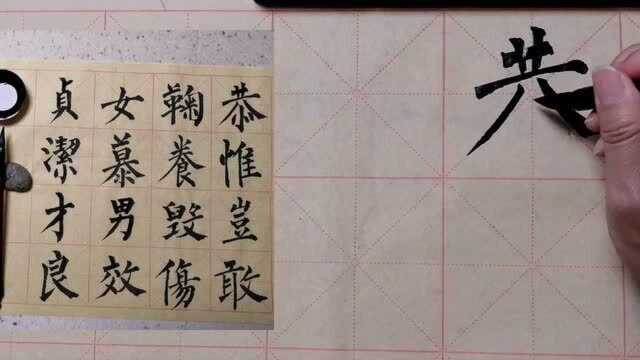 恭惟豈敢
鞠養毀傷
女慕男效
貞潔才良